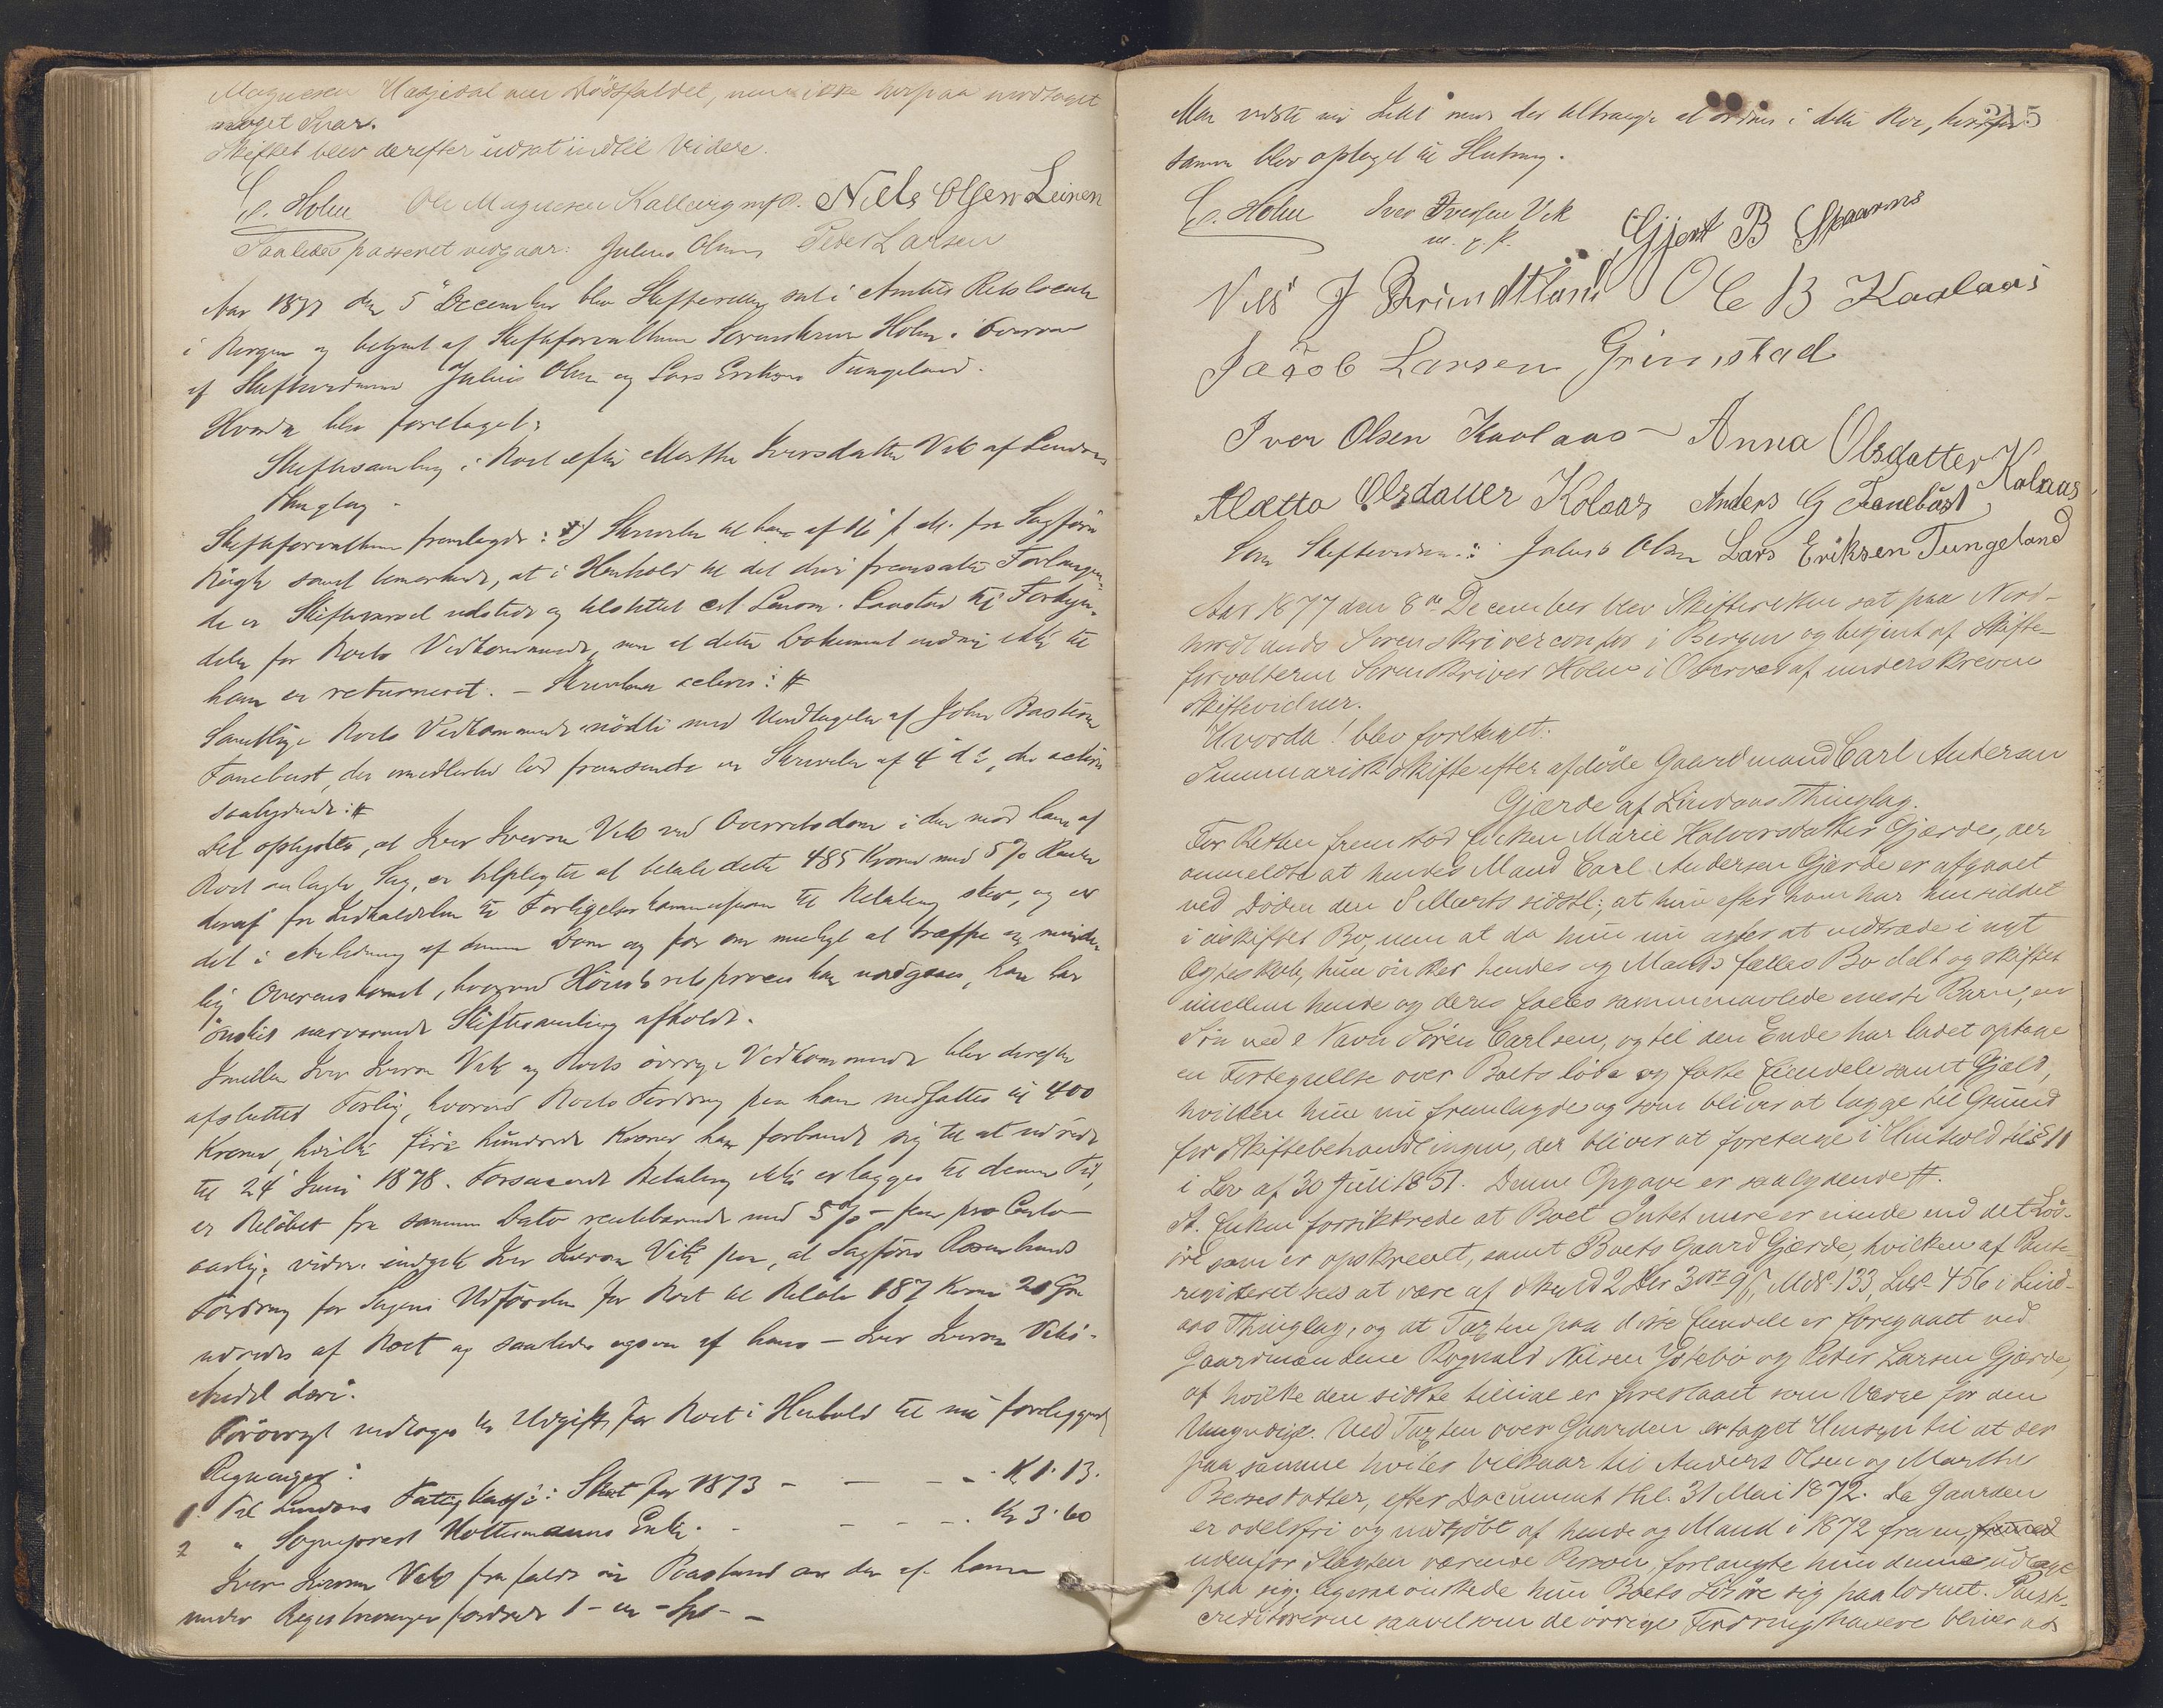 Magnesen Hasjedal om Dødsfaldet, men ikke herpaa modtaget
noget Svar.
Skiftet blev derefter udsat indtil Videre.
C. Holm Ole Magnesen Kallevig m.f.P. Nils Olsen Leiren
Saaledes passeret vedgaar: Julius Olsen Peder Larsen
Aar 1877 den 5 December blev Skifteretten sat i Amtets Retslocale
i Bergen og betjent af Skifteforvalteren Sorenskriver Holm i Overvær
af Skiftevidnerne Julius Olsen og Lars Eriksen Tungeland.
Hvorda blev foretaget:
Skiftesamling i Boet efter Marthe Iversdatter Vik af Lindaas
Thinglag.
Skifteforvalteren fremlagde: Skrivelse til ham af 16 f. M. fra Sagfører
samt bemærkede, at i Henhold til det deri fremsatte Forlangen-
de er Skiftevarsel udstedt og tilstillet Lensm. til Forkyn-
delse for Boets Vedkommende, men at dette Dokument endnu ikke til
ham er returneret. – Skrivelsen acteres: #
Samtlige Boets Vedkommende mødte med Undtagelse af John Bastian
Fanebust, der imidlertid lod fremsende en Skrivelse af 4 d.s, der acteres
saalydende: #
Det oplystes, at Iver Iversen Vik ved Overretsdom i den mod ham af
Boet anlagte Sag, er tilpligtet at betale dette 485 Kroner med 5 % Renter
deraf fra Indkaldelsen til Forligelseskommissionen til Betaling sker, og er
det i Anledning af denne Dom og for om muligt at træffe en mindre-
lig Overenskomst, hvorved Høiesteretsproces kan undgaaes, han har
ønsket nærværende Skiftesamling afholdt.
Imellem Iver Iversen Vik og Boets øvrige Vedkommende blev derefter
afsluttet Forlig, hvorved Boets Fordring paa ham nedsattes til 400
Kroner, hvilke fire hundrede Kroner han forbandt sig til at udrede
til 24 Juni 1878. Forsaavidt Betaling ikke erlægges til denne Tid,
er Beløbet fra samme Dato rentebærende med 5% – fem pro Cento –
aarlig; videre indgik Iver Iversen Vik paa, at Sagfører Rosenlunds
Fordring for Sagens Udførelse for Boet til Beløb 187 Kroner 20 Øre
udredes af Boet og saaledes ogsaa af hans – Iver Iversen Viks –
Andel deri.
Forøvrigt vedtages til Udgift for Boet i Henhold til nu foreliggende
Regninger:
1. Til Lindaas Fattigkasse: Skat for 1873 – – – – K 1.13.
2 " Sogneprest Holtermanns Enke. – – – Kr 3.60
Iver Iversen Vik frafaldt sin Paastand om den af ham
under Registreringen fordrede 1 – en – Spd – –
215
Man vidste nu Intet mere der tiltrængte at ordnes i dette Bo, hvorfor
samme blev optaget til Slutning.
C. Holm Iver Iversen Vik
m. f. P.
Gjert B Skaarnes
Nils J Brundtland Ole B Kaalaas
Jacob Larsen Grimstad
Iver Olsen Kaalaas – Anna Olsdatter Kalaas
Alætta Olsdatter Kolaas Anders G Fanebust
Som Skiftevidner: Julius Olsen Lars Eriksen Tungeland
Aar 1877 den 8de December blev Skifteretten sat paa Nord-
hordlands Sorenskrivercontor i Bergen og betjent af Skifte-
forvalteren Sorenskriver Holm i Overvær af underskrevne
Skiftevidner.
Hvorda! blev foretaget:
Summarisk Skifte efter afdøde Gaardmand Carl Andersen
Gjærde af Lindaas Thinglag.
For Retten fremstod Enken Marie Halvorsdatter Gjærde, der
anmeldte at hendes Mand Carl Andersen Gjærde er afgaaet
ved Døden den 8 Marts sidstl; at hun efter ham har hensiddet
i uskiftet Bo, men at da hun nu agter at indtræde i nyt
Ægteskab, hun ønsker hendes og Mands fælles Bo delt og skiftet
imellem hende og deres fælles sammenavlede eneste Barn, en
Søn ved Navn Søren Carlsen, og til den Ende har ladet optage
en Fortegnelse over Boets løse og faste Eiendele samt Gjæld,
hvilken hun nu fremlagde og som bliver at lægge til Grund
for Skiftebehandlingen, der bliver at foretage i Henhold til § 11
i Lov af 30 Juli 1851. Denne Opgave er saalydende #.
St. Enken forsikkrede at Boet Intet mere er eiende end det Løs-
øre som er opskrevet, samt Boets Gaard Gjærde, hvilken af Pante-
registeret sees at være af Skyld 2 Dlr 3 Ort 9 ß, MNo 133, LNo 456 i Lind-
aas Thinglag, og at Taxten paa disse Eiendele er foregaaet ved
Gaardmændene Rognald Nilsen Ystebø og Peder Larsen Gjærde,
af hvilke den sidste tillige er foreslaaet som Værge for den
Umyndige. Ved Taxten over Gaarden er taget Hensyn til at der
paa samme hviler Vilkaar til Anders Olsen og Marthe
Bessesdatter, efter Document thl. 31 Mai 1872. Da Gaarden
er odelsfri og indkjøbt af hende og Mand i 1872 fra en
udenfor Slægten værende Person, forlangte hun denne udlagt
paa sig; ligesaa ønskede hun Boets Løsøre sig paalodnet. Pant-
creditorerne saavelsom de øvrige Fordringshavere bliver at